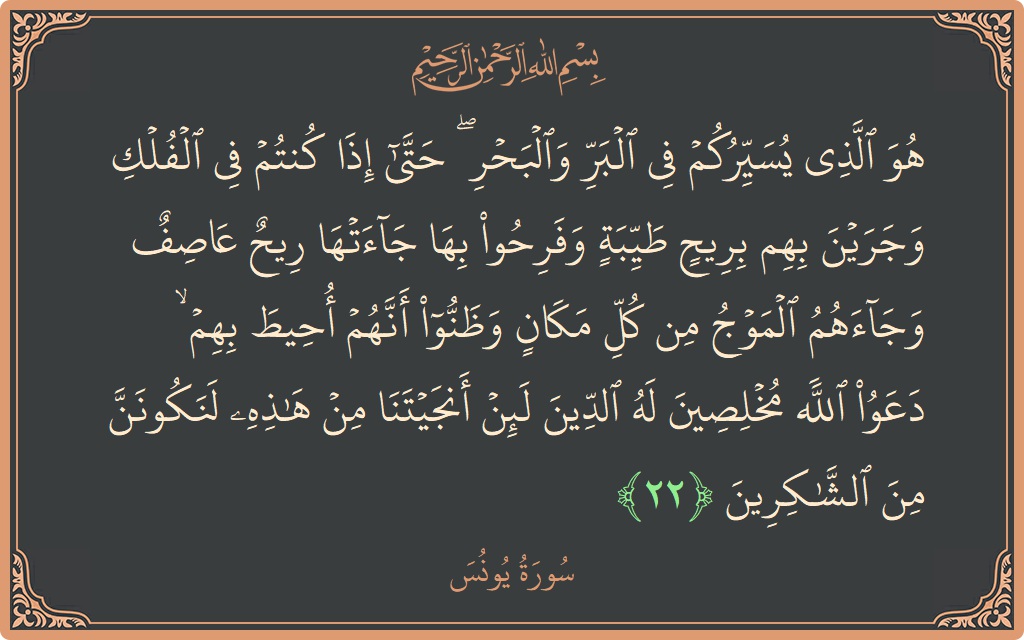 بِسْمِ اللَّهِ الرَّحْمَٰنِ الرَّحِيمِ
هُوَ ٱلَّذِى يُسَيِّرُكُمْ فِى ٱلْبَرِّ وَٱلْبَحْرِ ۖ حَتَّىٰٓ إِذَا كُنتُمْ فِى ٱلْفُلْكِ
وَجَرَيْنَ بِهِم بِرِيحٍ طَيِّبَةٍ وَفَرِحُوا۟ بِهَا جَآءَتْهَا رِيحٌ عَاصِفٌ
وَجَآءَهُمُ ٱلْمَوْجُ مِن كُلِّ مَكَانٍ وَظَنُّوٓا۟ أَنَّهُمْ أُحِيطَ بِهِمْ ۙ
دَعَوُا۟ ٱللَّهَ مُخْلِصِينَ لَهُ ٱلدِّينَ لَئِنْ أَنجَيْتَنَا مِنْ هَٰذِهِۦ لَنَكُونَنَّ
مِنَ ٱلشَّٰكِرِينَ ﴿٢٢﴾
سُورَةُ يُونُسَ